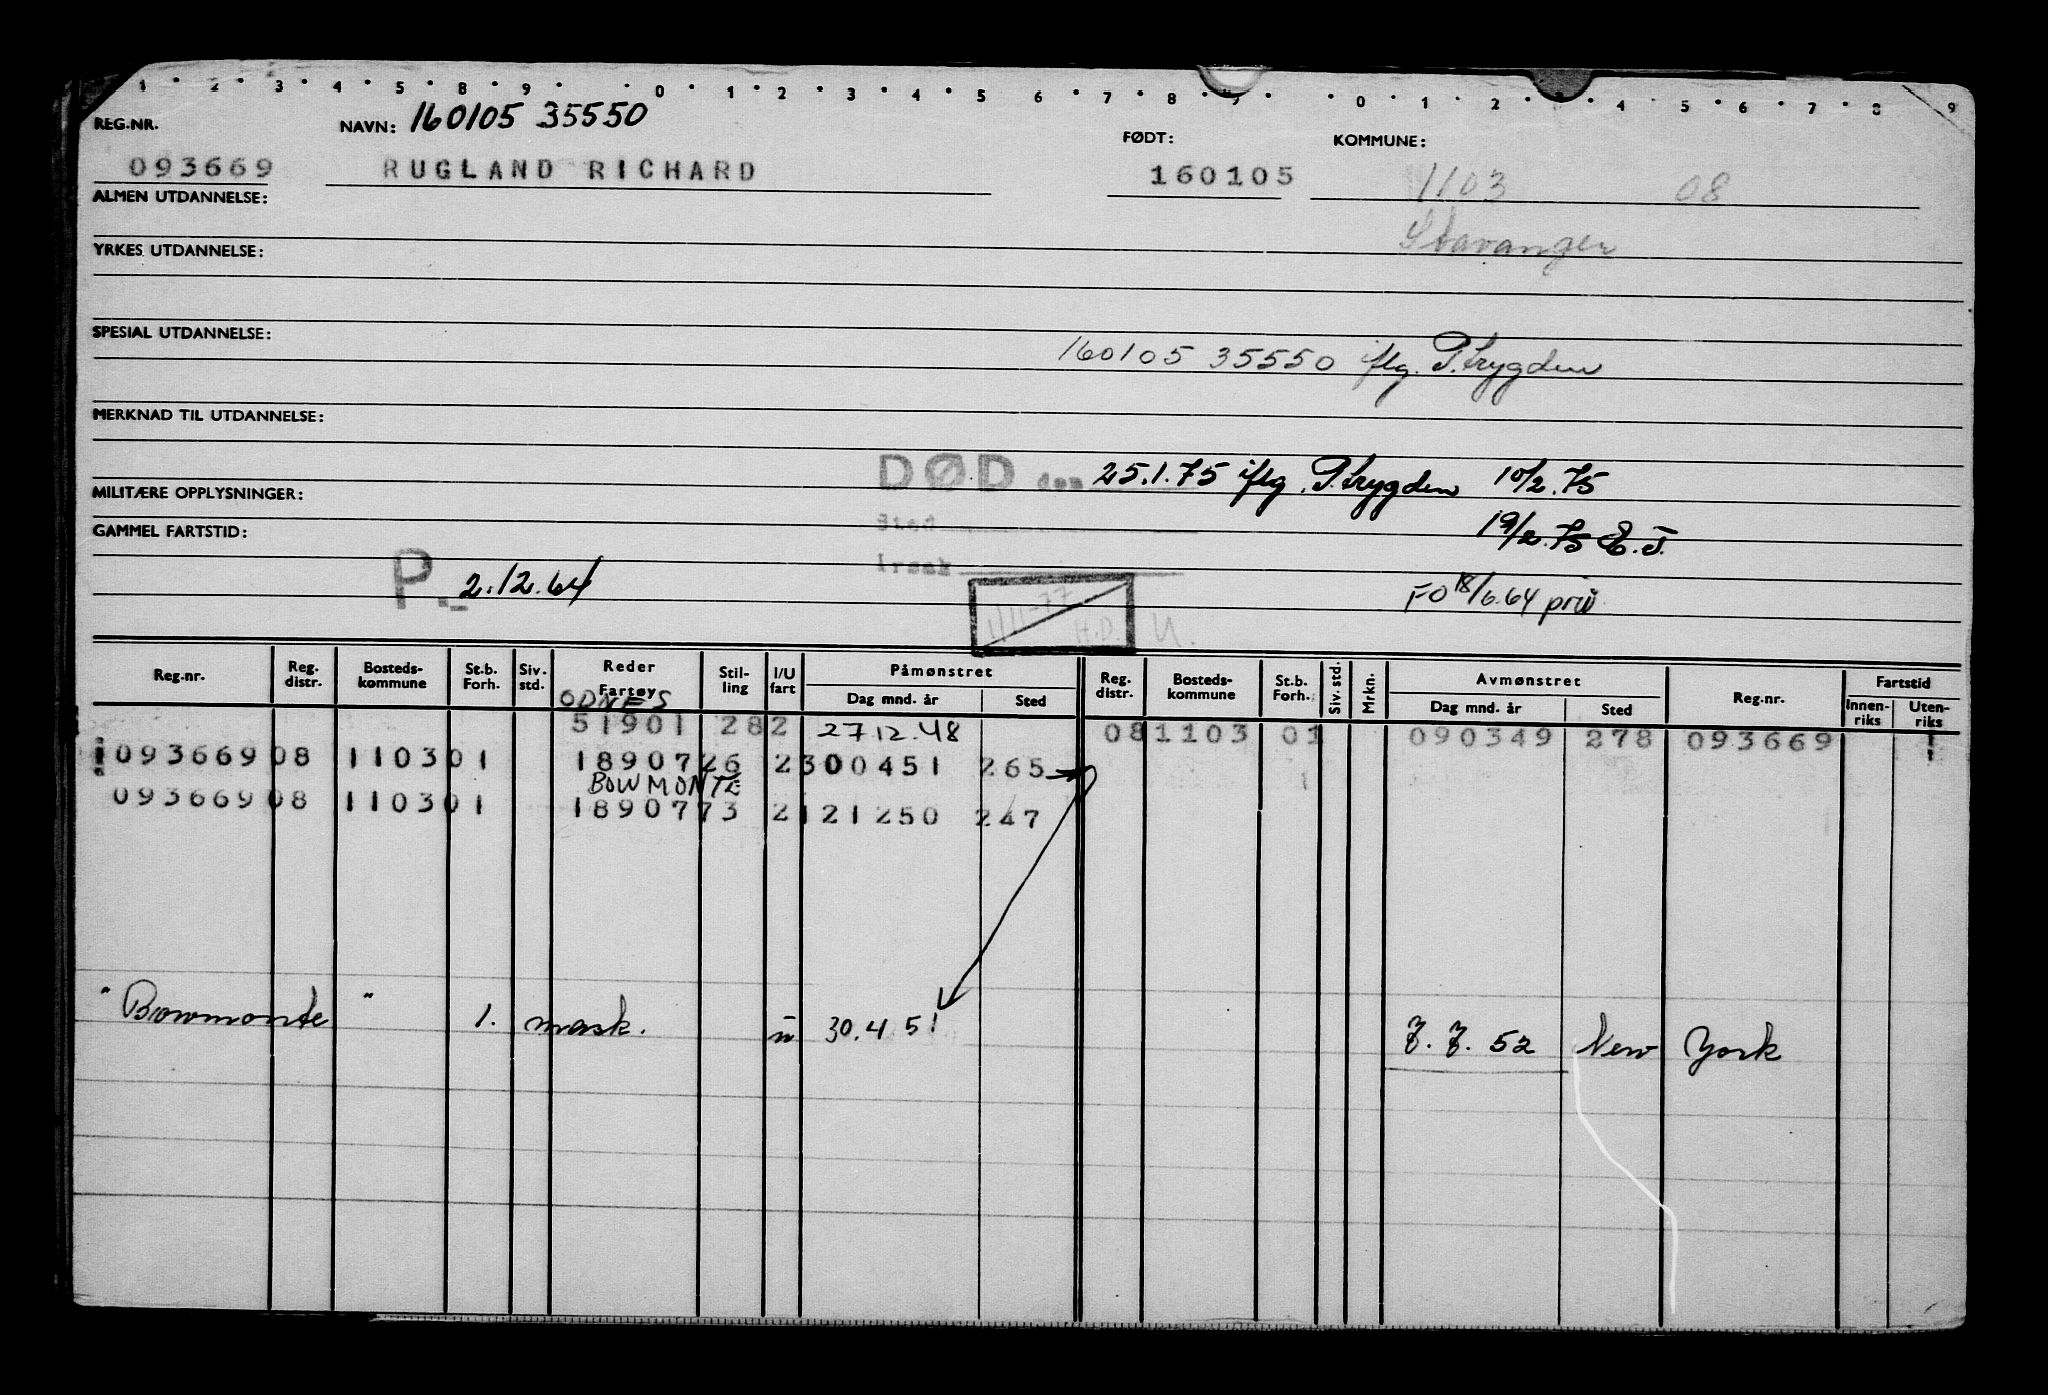 1 2 3 4 5 8 9 0 1 2 3 4 5 6 7 8 9 0 1 2 3 4 5 6 7 8 9
REG.NR. NAVN: 160105 35550 FØDT: KOMMUNE:
093669 RUGLAND RICHARD 160105 1103 08
ALMEN UTDANNELSE:
Stavanger
YRKES UTDANNELSE:
SPESIAL UTDANNELSE:
160105 35550 iflg. P.trygden
MERKNAD TIL UTDANNELSE:
DØD den 25.1.75 iflg. P.trygden 10/2.75
MILITÆRE OPPLYSNINGER:
Sted 19/2.75 E.J.
GAMMEL FARTSTID:
Årsak
P.- 2.12.64 1/11-77 H.D. U. FO 18/6.64 priv.
Reg.nr. Reg. distr. Bosteds- kommune St.b. Forh. Siv. std. Reder Fartøy Stil- ling I/U fart Påmønstret Reg. distr. Bosteds- kommune St.b. Forh. Siv. std. Mrkn. Avmønstret Reg.nr. Fartstid
Dag mnd. år Sted Dag mnd. år Sted Innen- riks Uten- riks
ODNES
51901 28 2 27 12.48 08 1103 01 090349 278 093669
093669 08 1103 01 18907 26 2 300451 265
BOWMONTE
093669 08 1103 01 18907 73 2 121250 247
"Bowmonte" 1. mask. u 30.4.51 7.7.52 New York